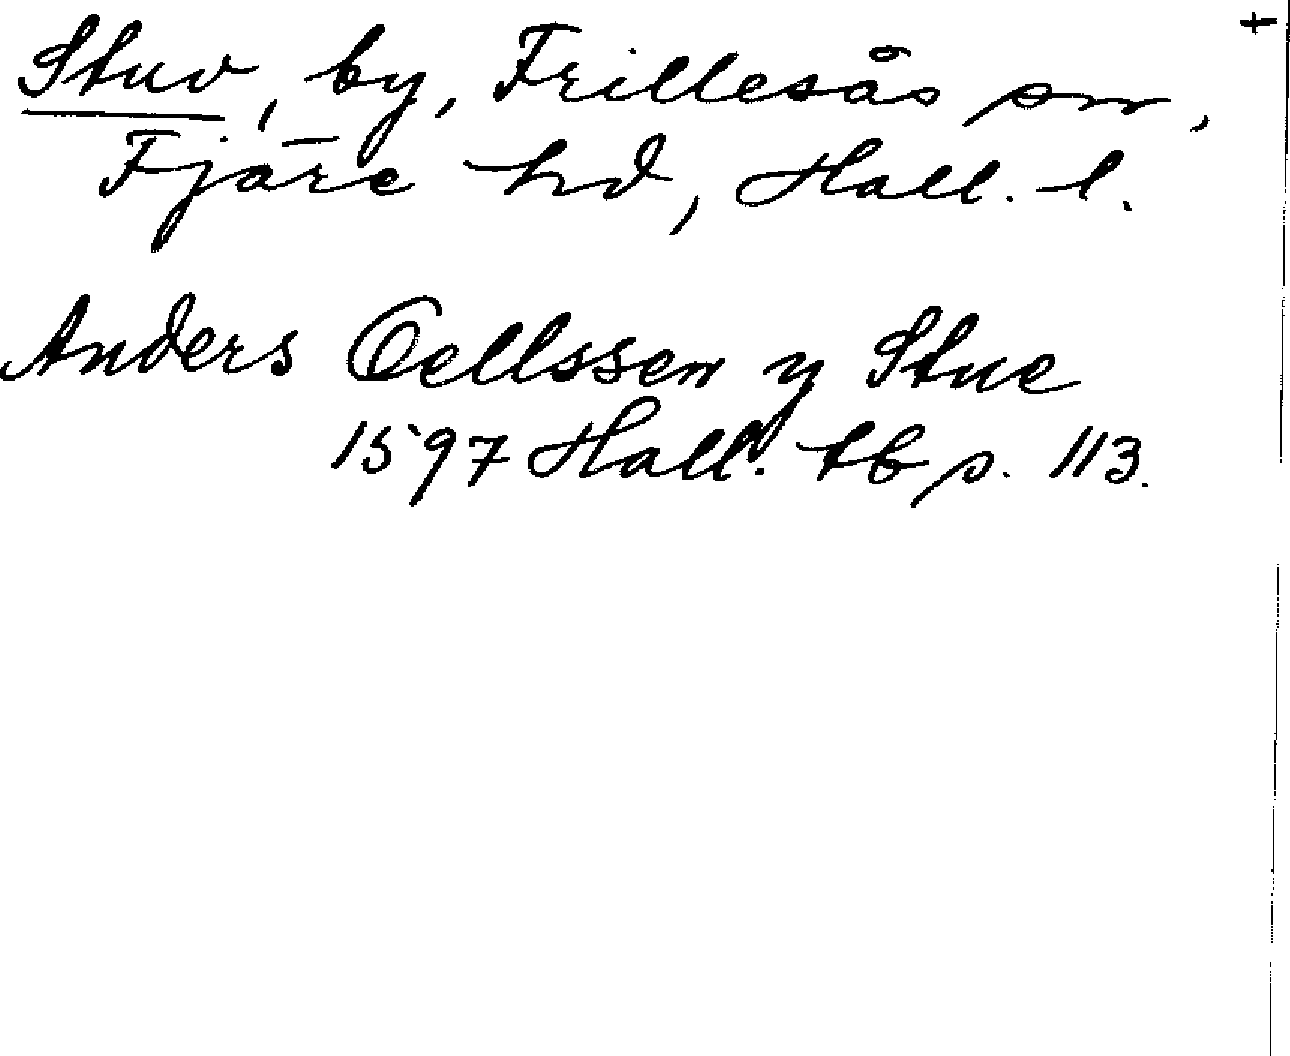 Stuv, by, Frillesås sn,
Fjäre hd, Hall. l.
Anders Oellssen y Stue
1597 Hall. tb s. 113.